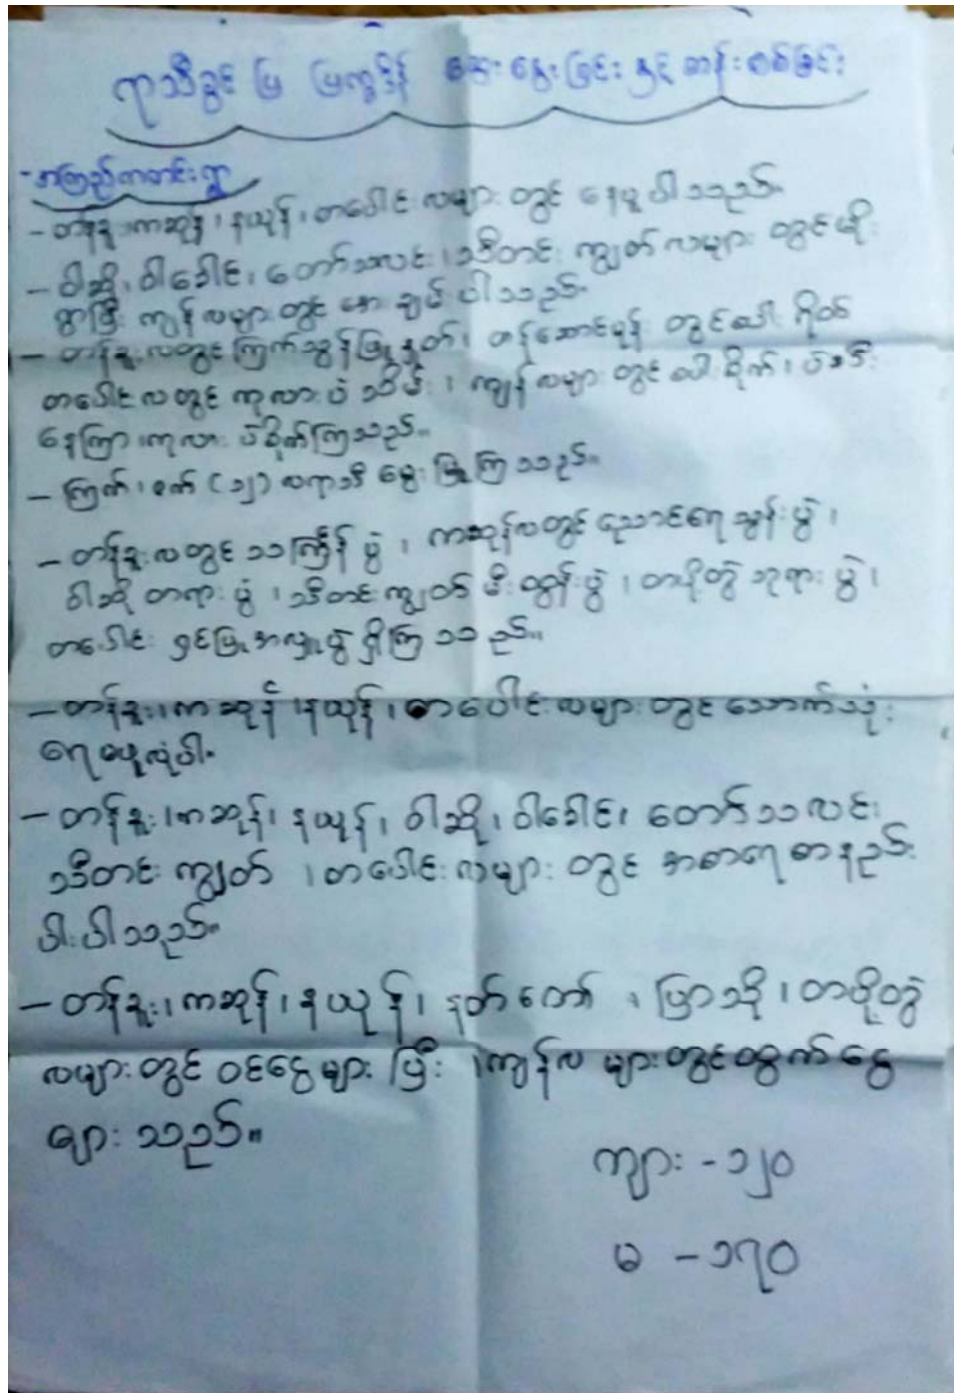 ရာသီခွင် ပြ ပြက္ခဒိန် ဆွေးနွေးခြင်း နှင့် ဆန်းစစ်ခြင်း
- အကြည်တောင်းရွာ
- တန်ခူး၊ ကဆုန်၊ နယုန်၊ တပေါင်း လများ တွင် နေပူ ပါသည်။
- ဝါဆို၊ ဝါခေါင်၊ တော်သလင်း၊ သီတင်း ကျွတ် လများ တွင် မိုး
ရွာပြီး ကျန် လများ တွင် အေး ချမ်း ပါသည်။
- တန်ခူးလတွင် ကြက်သွန်ဖြူ နှုတ်၊ တန်ဆောင်မုန်း တွင်
တပေါင်းလ တွင် ကုလားပဲ သိမ်း၊ ကျန် လများ တွင် စိုက်၊
နေကြာ၊ ကုလား ပဲစိုက်ကြသည်။
- ကြက်၊ ဝက် (၁၂) လရာသီ မွေး မြူကြ သည်။
- တန်ခူးလတွင် သင်္ကြန် ပွဲ၊ ကဆုန်လတွင် ညောင်ရေ သွန်းပွဲ၊
ဝါဆို တရား ပွဲ၊ သီတင်းကျွတ် မီးထွန်းပွဲ၊ တပို့တွဲ ဘုရား ပွဲ၊
တပေါင်း ရှင်ပြု အလှူပွဲ ရှိကြ သည်။
- တန်ခူး၊ ကဆုန်၊ နယုန်၊ တပေါင်း လများ တွင် သောက်သုံး
ရေ မလုံပါ။
- တန်ခူး၊ ကဆုန်၊ နယုန်၊ ဝါဆို၊ ဝါခေါင်၊ တော်သလင်း၊
သီတင်း ကျွတ်၊ တပေါင်း လများ တွင် အစာရေစာ နည်း
ပါး ပါသည်။
- တန်ခူး၊ ကဆုန်၊ နယုန်၊ နတ်တော်၊ ပြာသို၊ တပို့တွဲ
လများ တွင် ဝင်ငွေ များ ပြီး၊ ကျန်လ များတွင် ထွက်ငွေ
များ သည်။
ကျား - ၁၂၀
မ - ၁၇၀